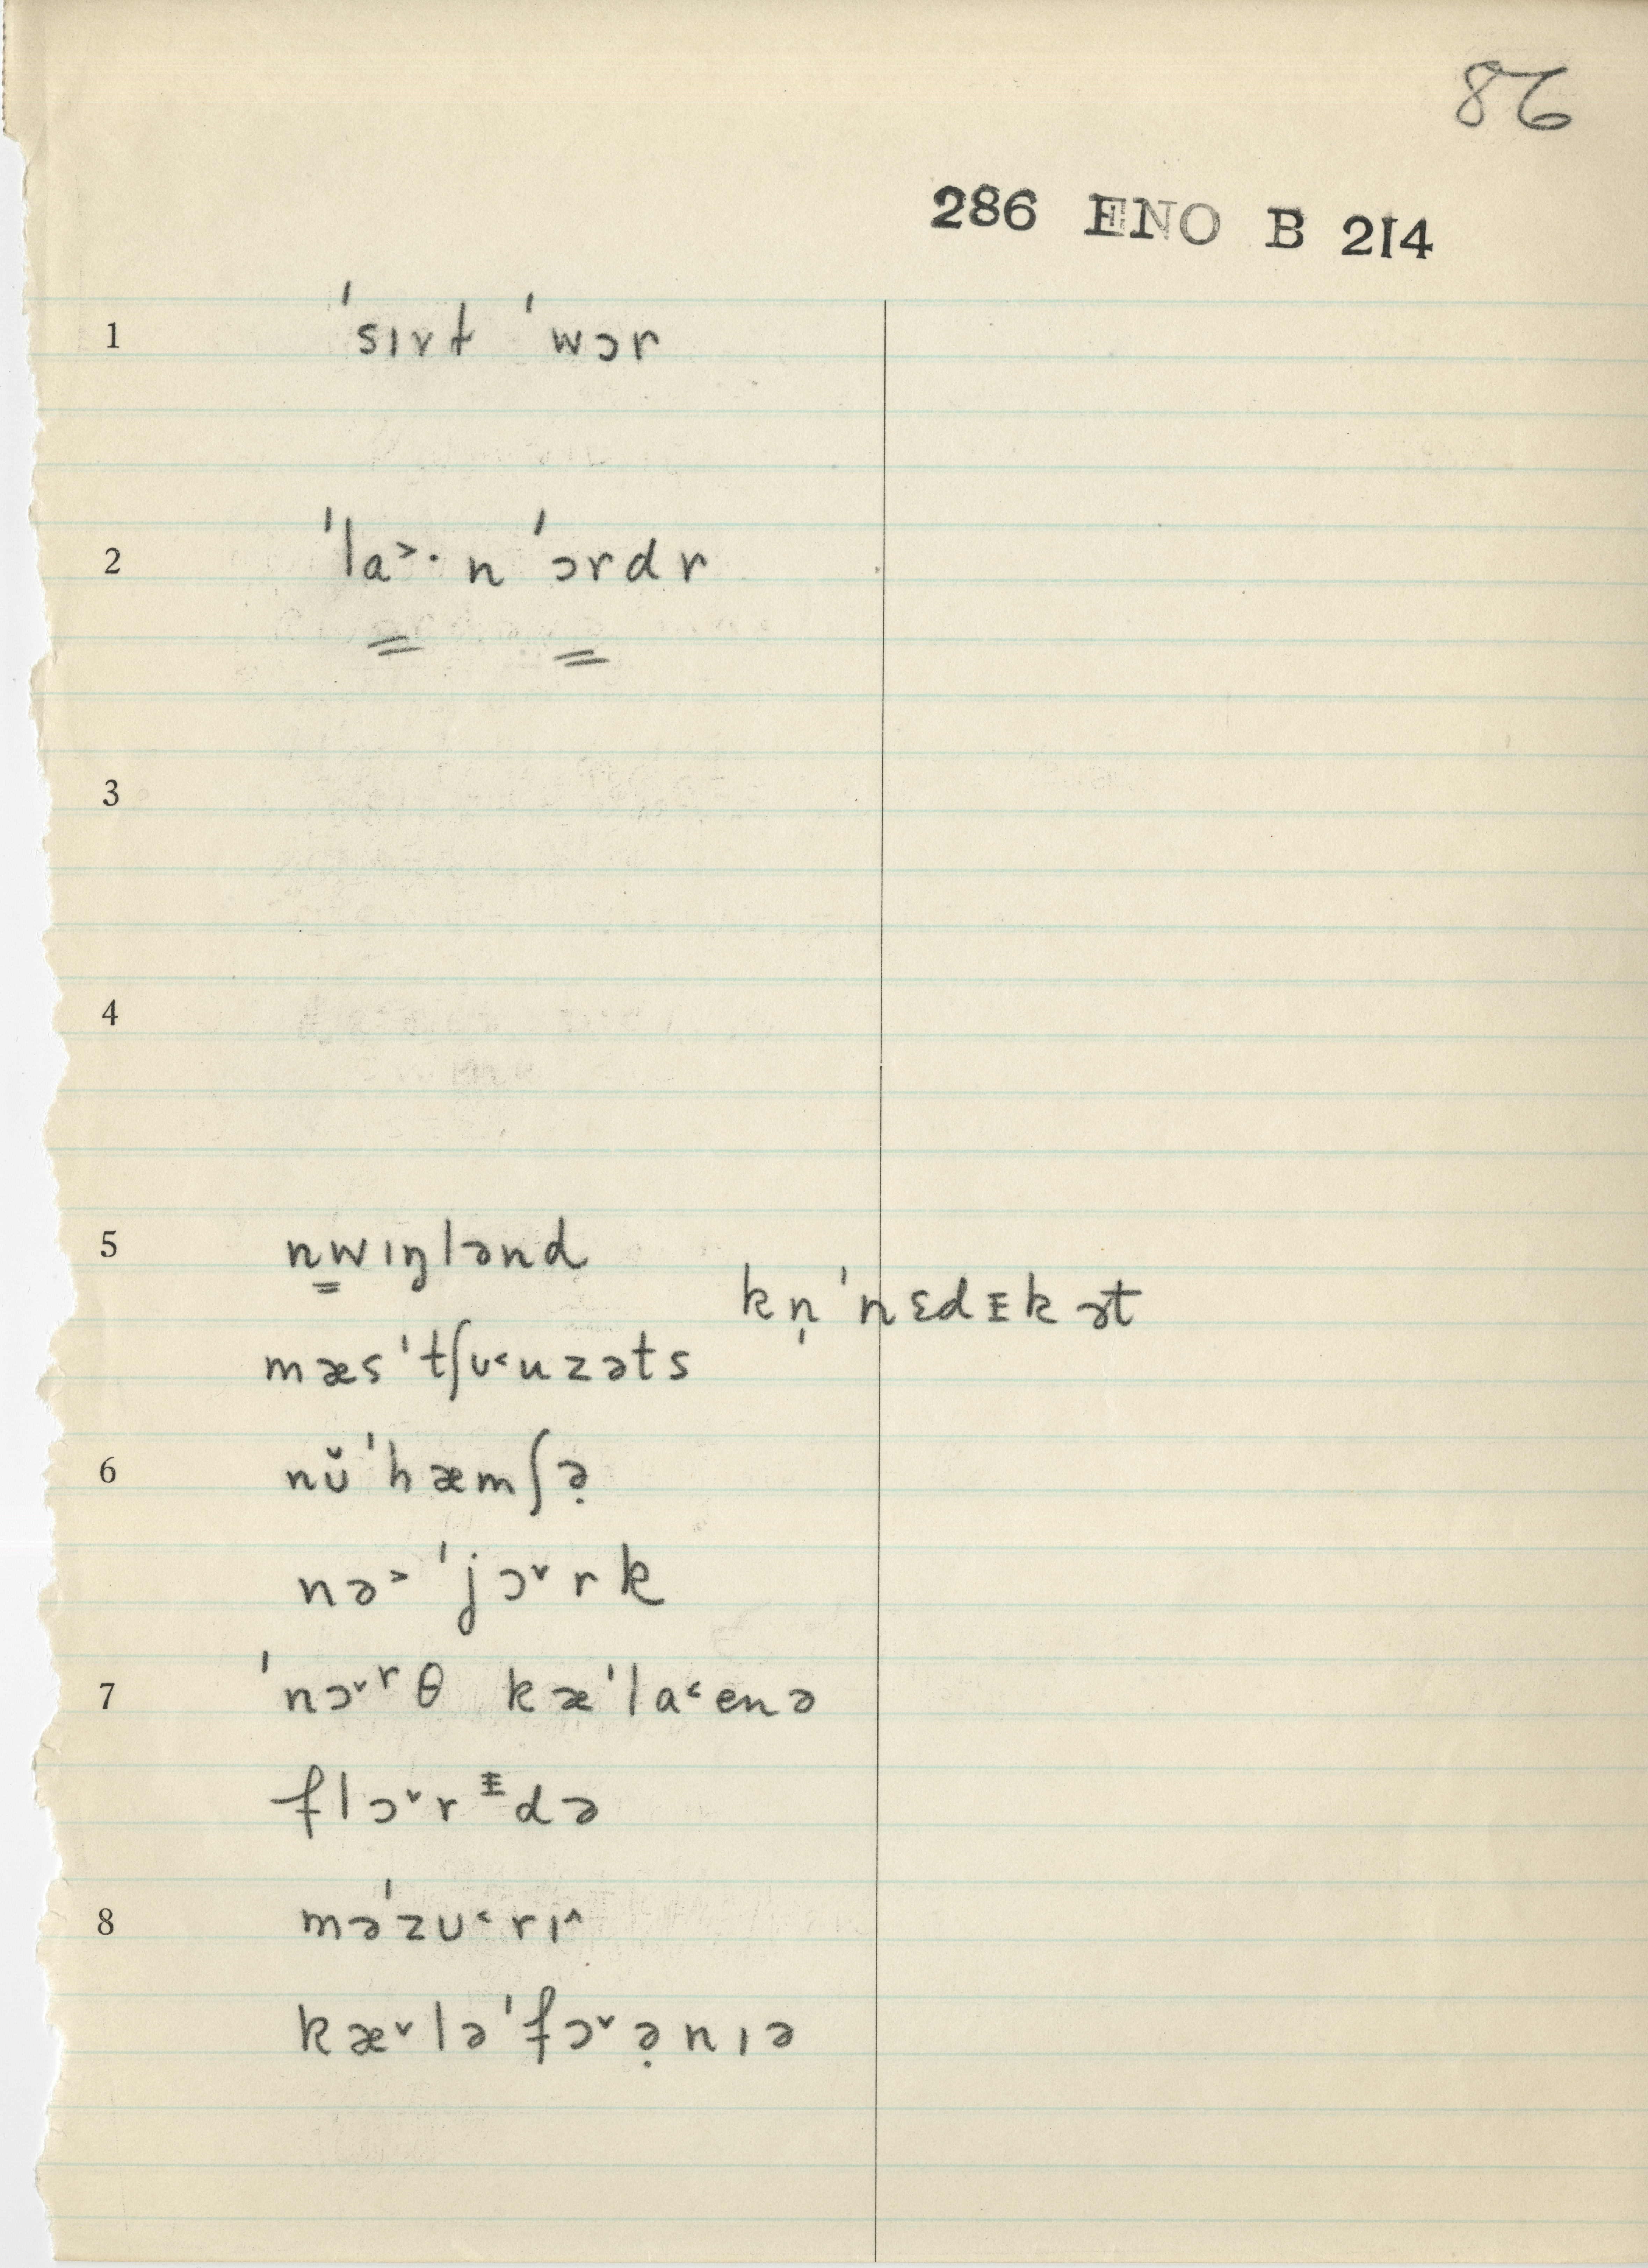 86
286 ENO B 214
1 ˈsɪvɫ ˈwɔr
2 ˈla˃· n ˈɔrdr
3
4
5 nwɪŋlənd
kn̩ˈnɛdᵻkət
mæsˈtʃᴜ˂uzəts
6 nᴜ̆ˈhæmʃə̣
nə˃ ˈjɔ˅rk
7 ˈnɔ˅ʳθ kæˈla˂enə
flɔ˅rᵻdə
8 məˈzᴜ˂rɪ˄
kæ˅ləˈfɔ˅ə̣nɪə